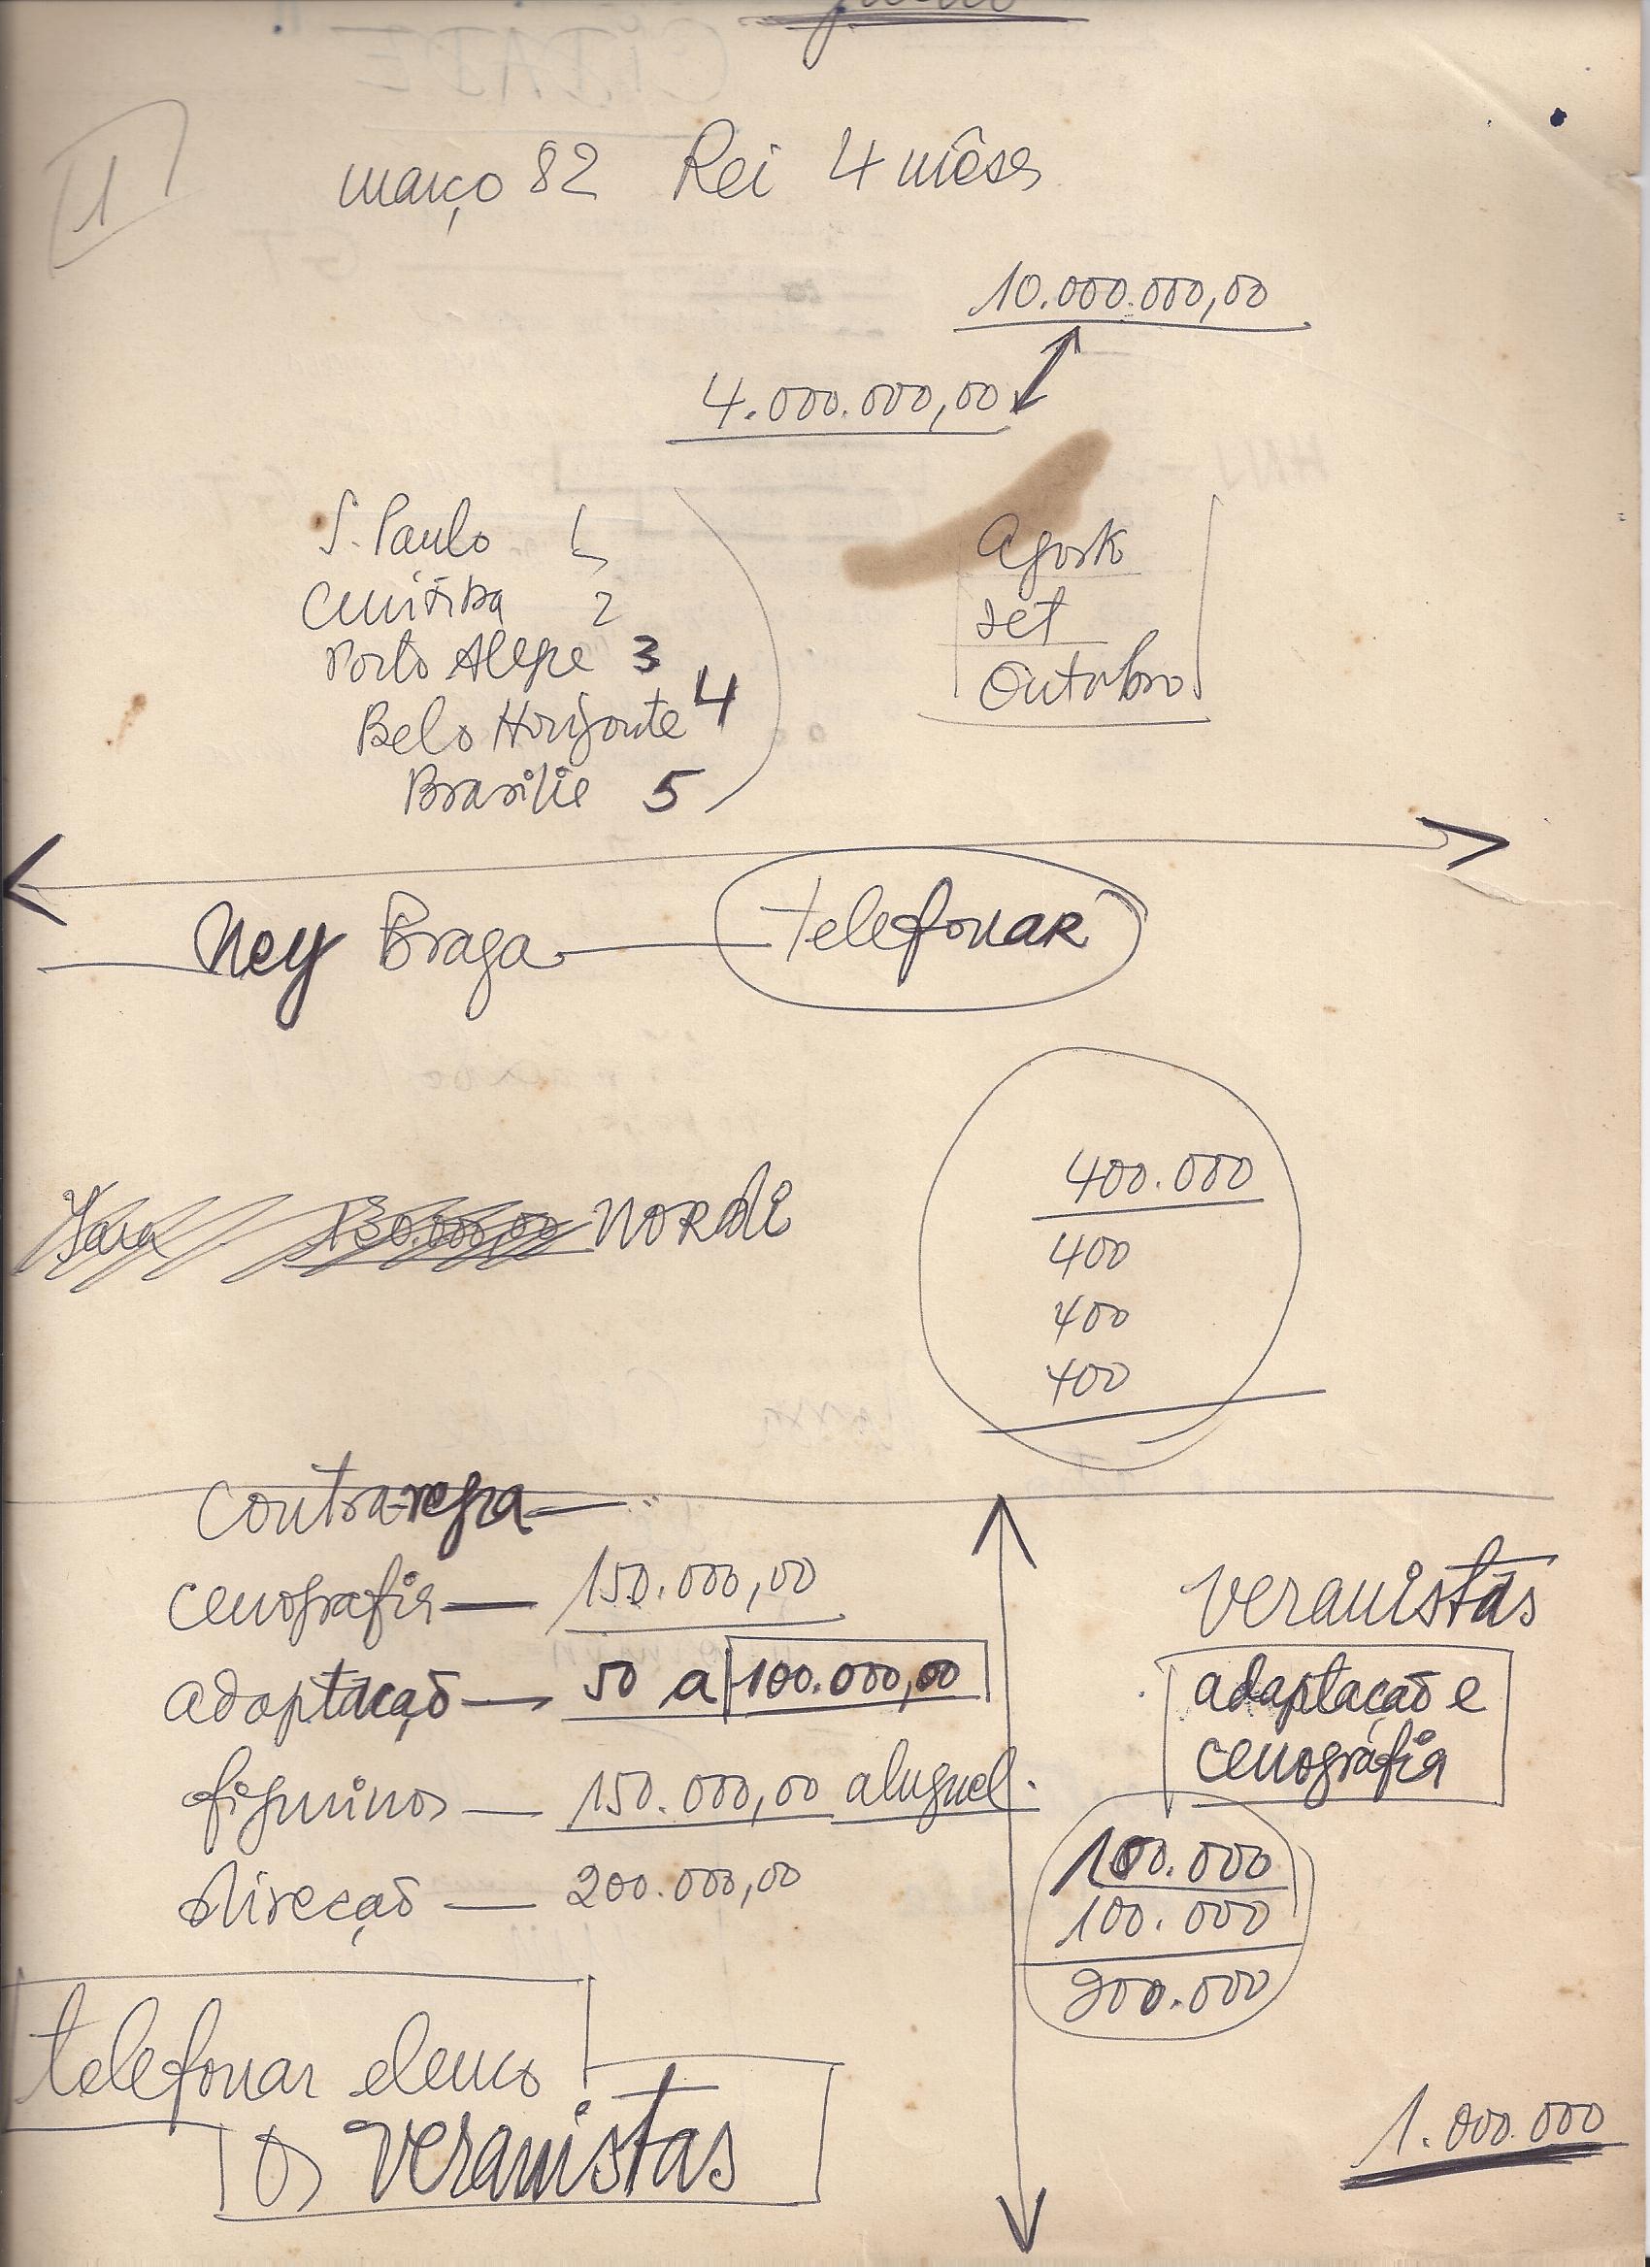 1
março 82 Rei 4 mêses
10.000.000,00
4.000.000,00
S. Paulo 1
Curitiba 2
Porto Alegre 3
Belo Horizonte 4
Brasilia 5
Agosto
set
Outubro
Ney Braga — telefonar
Yara 130.000,00 NORdi
400.000
400
400
400
contra-regra —
cenografia — 150.000,00
adaptação — 50 a 100.000,00
figurinos — 150.000,00 aluguel.
direcção — 200.000,00
veranistas
adaptação e
cenográfia
100.000
100.000
200.000
telefonar elenco
os veranistas
1.000.000